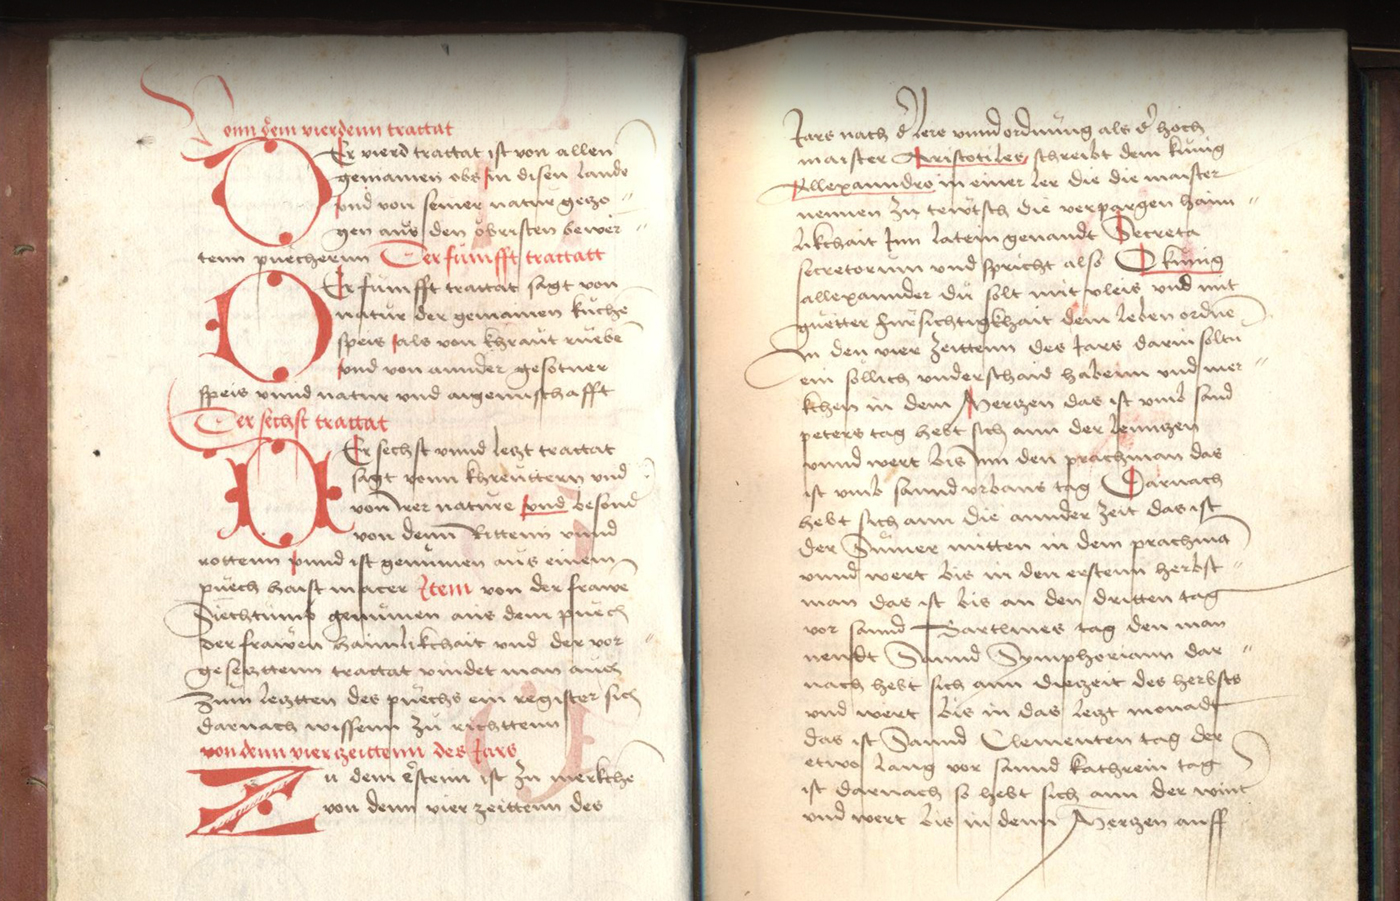 Vonn dem vierdenn trattat
DEr vierd trattat ist von allen
gemainen obs in disen lande
vnd von seiner natur gezo
gen aus den obristen bewer
tenn puechernn Der fümfft trattatt
DEr fümfft trattat sagt von
natur der gemainen kuche
speis als von khraut rueben
vnd von annder gesotner
speis vnnd natur vnd aigennschafft
Der sechst trattat
DEr sechst vnnd letzt trattat
sagt vonn khreuttern vnd
von irer nature vnd besond
von denn Rittenn vnnd
rottenn vnnd ist genumen aus einem
puech haist macer Item von der frawe
Siechtumb genumen aus dem puech
der frawen haimlikchait vnd der vor
gesetzttenn trattat vindet man auch
Zum letzten des puechs ein register sich
darnach wissenn zu richttenn
von denn vier zeittenn des Jars
Zu dem erstenn ist zu merkche
von denn vier zeittenn des
Jars nach der lere vnnd ordnung als der hoch
maister Aristotiles schreibt dem kunig
Allexanndro in einer ler die die maister
nennen zu tewtsch die verporgen haim
likchait Inn latein genandt Secreta
secretorum vnd spricht also O kunig
allexannder du solt mit vleis vnd mit
guetter fursichtigkhait dem leben ordne
In den vier zeittenn des Jars darin soltu
ein sollich vnderschaid habenn vnd mer
kchen in dem Mertzen das ist vmb sand
peters tag hebt sich ann der lenntzen
vnnd wert bis inn den prachman das
ist vmb sannd vrbans tag Darnach
hebt sich ann die annder zeit das ist
der Sumer mitten in dem prachma
vnnd wert bis in den erstenn herbst
man das ist bis an den dritten tag
vor sannd Bartlmes tag den man
nendt Sannd Symphoriann dar
nach hebt sich ann die zeit des herbsts
vnd wert bis in das letzt monadt
das ist Sannd Clementen tag der
etwo lang vor sannd kathrein tag
ist darnach so hebt sich ann der wint
vnd wert bis in denn Mertzen auff